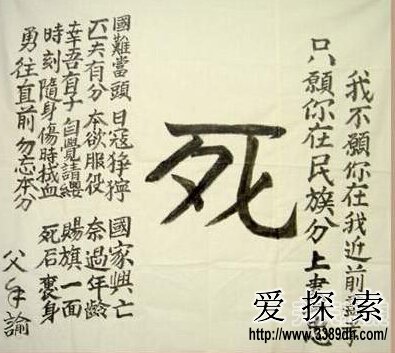 我不願你在我近前盡孝
只願你在民族分上盡忠
死
國難當頭 日寇猙獰 國家興亡
匹夫有分 本欲服役 奈過年齡
幸吾有子 自覺請纓 賜旗一面
時刻隨身 傷時拭血 死后裹身
勇往直前 勿忘本分
父手諭
爱探索
http://www.3389dh.com/